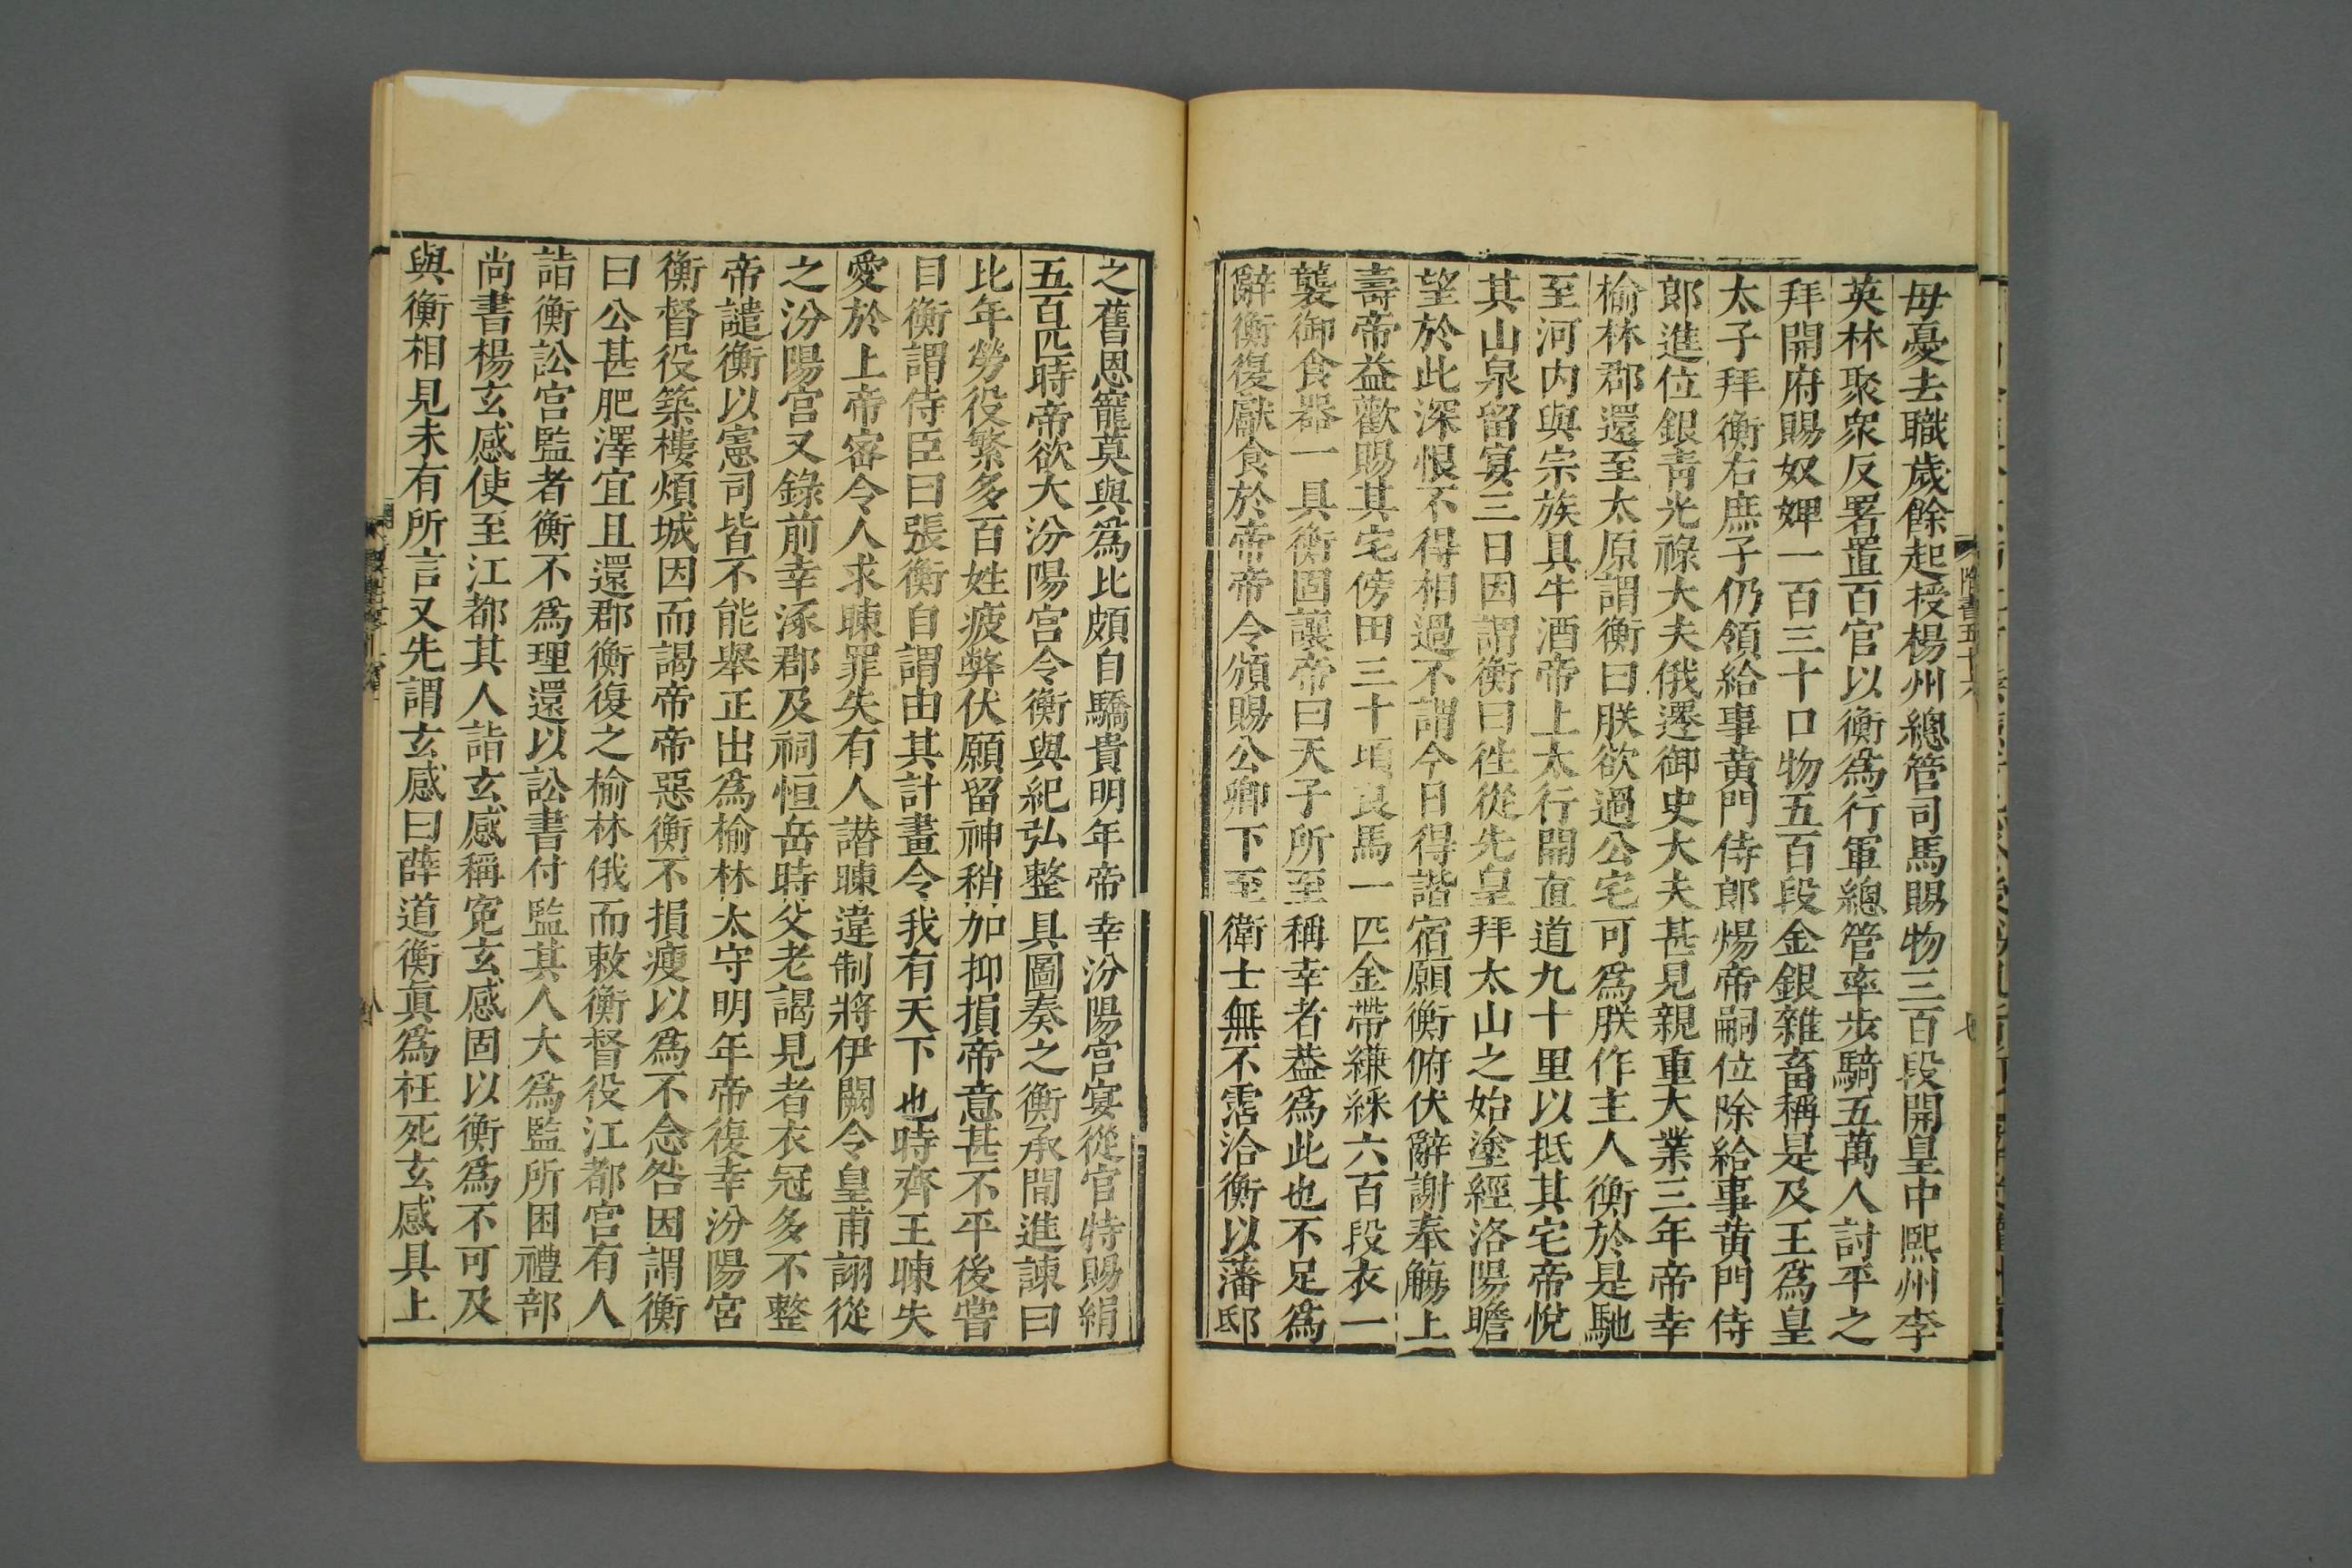 母憂去職歲餘起授楊州總管司馬賜物三百段開皇中熙州李
英林聚衆反署置百官以衡爲行軍總管率步騎五萬人討平之
拜開府賜奴婢一百三十口物五百段金銀雜畜稱是及王爲皇
太子拜衡右庶子仍領給事黃門侍郎煬帝嗣位除給事黃門侍
郎進位銀青光祿大夫俄遷御史大夫甚見親重大業三年帝幸
榆林郡還至太原謂衡曰朕欲過公宅可爲朕作主人衡於是馳
至河内與宗族具牛酒帝上太行開直道九十里以抵其宅帝悅
其山泉留宴三日因謂衡曰往從先皇拜太山之始塗經洛陽瞻
望於此深恨不得相過不謂今日得諧宿願衡俯伏辭謝奉觴上
壽帝益歡賜其宅傍田三十頃良馬一匹金帶縑綵六百段衣一
襲御食器一具衡固讓帝曰天子所至稱幸者葢爲此也不足爲
辭衡復獻食於帝帝令頒賜公卿下至衛士無不霑洽衡以藩邸
隋書五十六
七
之舊恩寵莫與爲比頗自驕貴明年帝幸汾陽宮宴從官特賜絹
五百匹時帝欲大汾陽宮令衡與紀弘整具圖奏之衡承間進諫曰
比年勞役繁多百姓疲弊伏願留神稍加抑損帝意甚不平後嘗
目衡謂侍臣曰張衡自謂由其計畫令我有天下也時齊王暕失
愛於上帝密令人求暕罪失有人譖暕違制將伊闕令皇甫詡從
之汾陽宮又錄前幸涿郡及祠恒岳時父老謁見者衣冠多不整
帝譴衡以憲司皆不能舉正出爲榆林太守明年帝復幸汾陽宮
衡督役築樓煩城因而謁帝帝惡衡不損瘦以爲不念咎因謂衡
曰公甚肥澤宜且還郡衡復之榆林俄而敕衡督役江都宮有人
詣衡訟宮監者衡不爲理還以訟書付監其人大爲監所困禮部
尚書楊玄感使至江都其人詣玄感稱寃玄感固以衡爲不可及
與衡相見未有所言又先謂玄感曰薛道衡眞爲枉死玄感具上
八